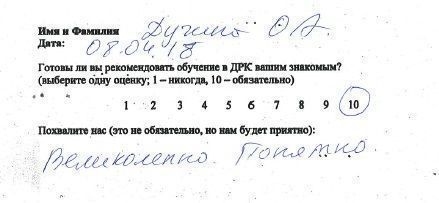 Имя и Фамилия Дучина О.А.
Дата: 08.04.18
Готовы ли вы рекомендовать обучение в ДРК вашим знакомым?
(выберите одну оценку; 1 – никогда, 10 – обязательно)
1 2 3 4 5 6 7 8 9 10
Похвалите нас (это не обязательно, но нам будет приятно):
Великолепно. Понятно.